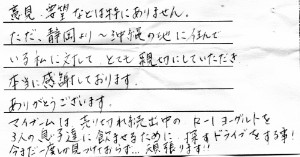 意見、要望などは特にありません。
ただ、静岡より〜沖縄の地に住んで
いる私に対して、とても親切にしていただき
本当に感謝しております。
ありがとうございます。
マイブームは、売りきれ続出中の R-1ヨーグルトを
3人の息子達に飲ませるために、探すドライブをする事!
今まだ一度しか見つけておらず…頑張ります!!